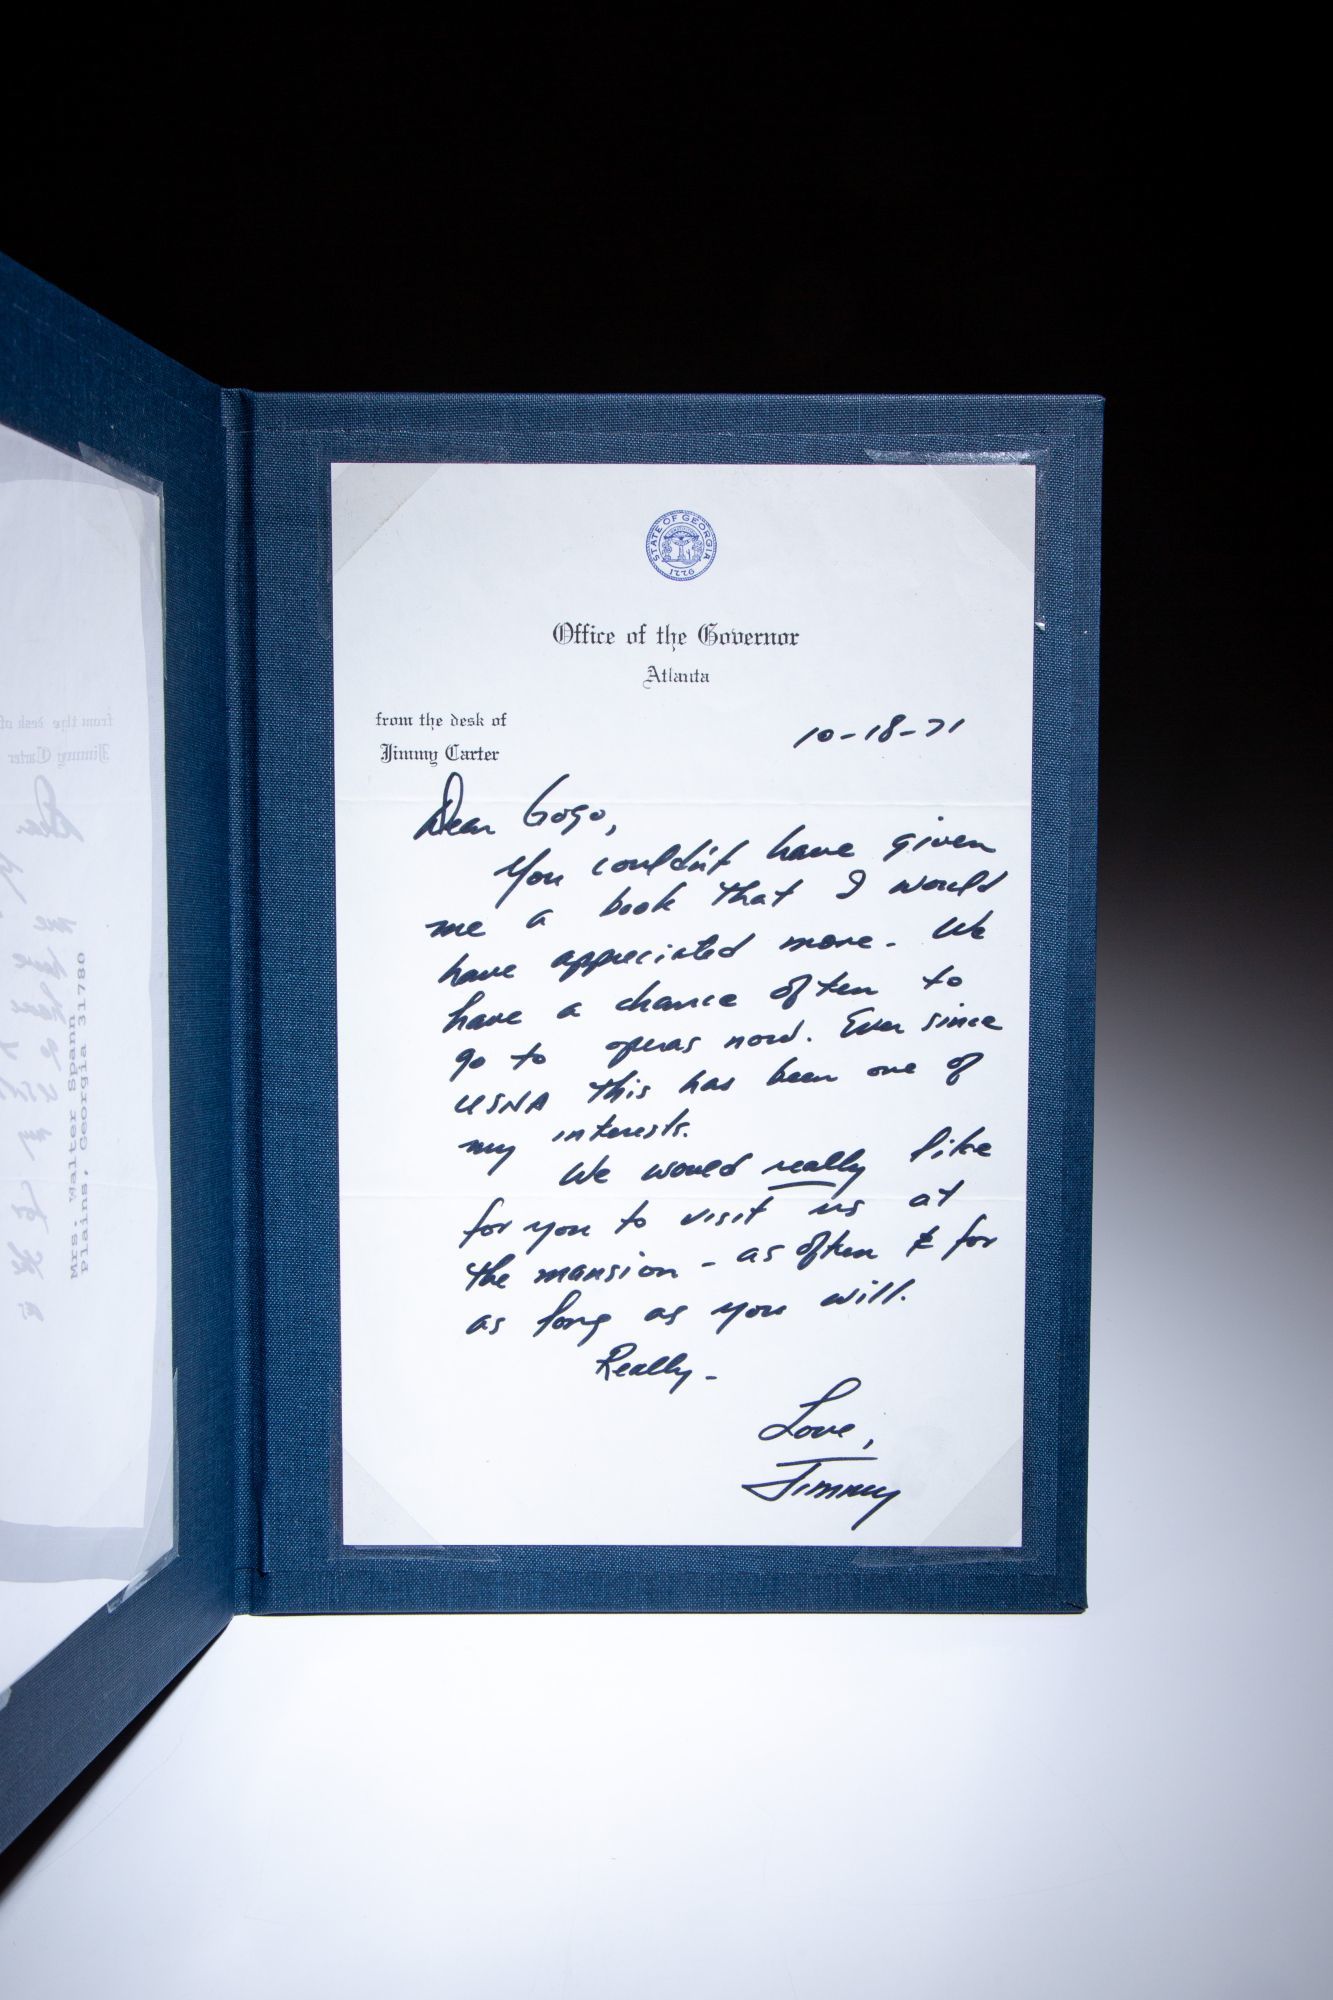 STATE OF GEORGIA
1776
Office of the Governor
Atlanta
from the desk of
Jimmy Carter
10-18-71
Dear Gogo,
You couldn't have given
me a book that I would
have appreciated more. We
have a chance often to
go to operas now. Ever since
USNA this has been one of
my interests.
We would really like
for you to visit us at
the mansion - as often & for
as long as you will.
Really -
Love,
Jimmy
from the desk of
Jimmy Carter
Dear
Mrs. Walter Spann
Plains, Georgia 31780